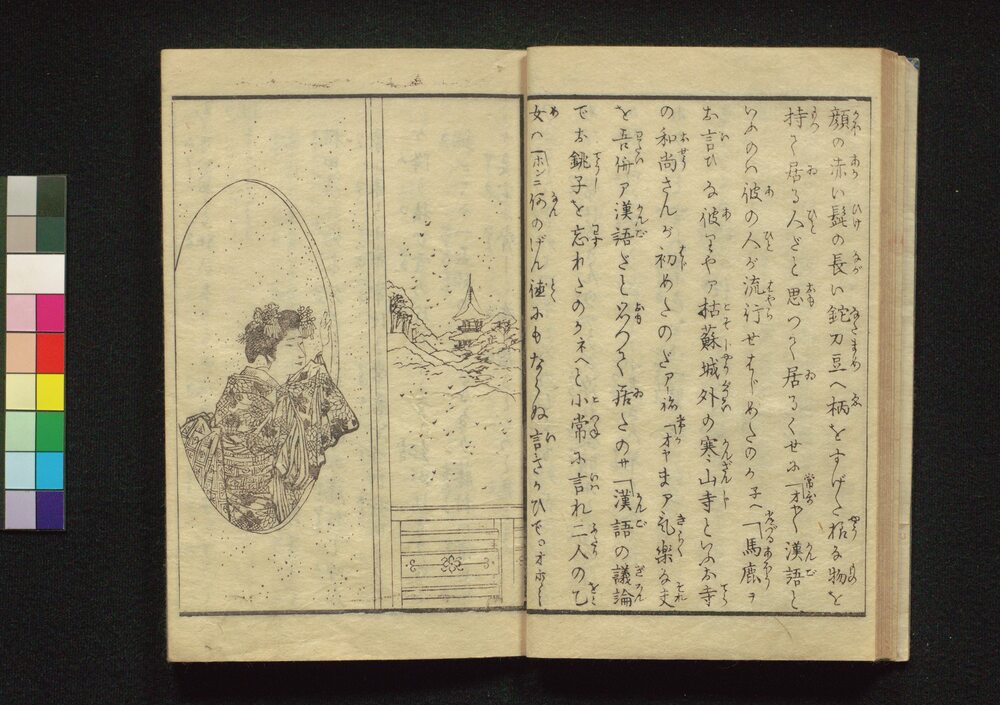 顔の赤い髭の長い鉈刀豆へ柄をすげた様な物を
持て居る人だと思つて居るくせに「オヤ〳〵漢語と
いふのハ彼の人が流行せはじめたのか子へ「馬鹿ヲ
お言ひな彼りやア姑蘇城外の寒山寺といふお寺
の和尚さんが初めたのだアね「オヤまア気楽な
を吾儕ア漢語だと思つて居たのサ「漢語の議論
でお銚子を忘れたのかネへと小常に言れ二人の乙
女ハ「ホンニ何のげん徳にもならぬ言さかひで